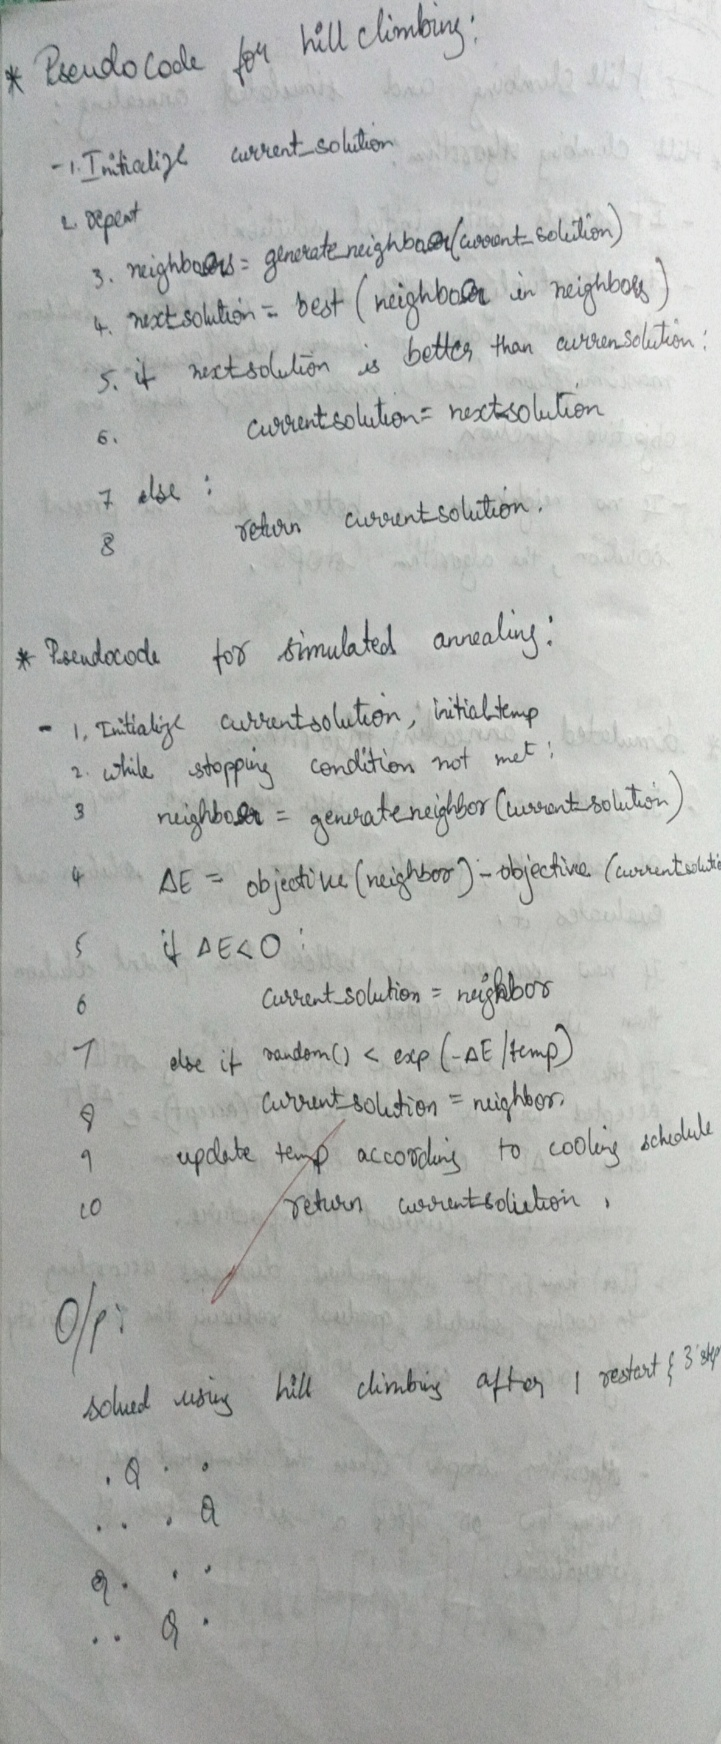 * Pseudocode for hill climbing:
- 1. Initialize current_solution
2. repeat
3. neighbours = generateneighbour(current_solution)
4. nextsolution = best (neighbour in neighbors)
5. if nextsolution is better than currensolution:
6. currentsolution = nextsolution
7 else :
8 return currentsolution.
* Pseudocode for simulated annealing:
- 1. Initialize currentsolution, initialtemp
2. while stopping condition not met:
3 neighbour = generateneighbor(currentsolution)
4 ΔE = objective(neighbor) - objective (currentsolutio
5 if ΔE<0 :
6 current_solution = neighbor
7 else if random() < exp (-ΔE/temp)
8 current_solution = neighbor.
9 update temp according to cooling schedule
10 return currentsolution ,
O/p:
solved using hill climbing after 1 restart & 3 step
. Q . .
. . . Q
Q . . .
. . Q .